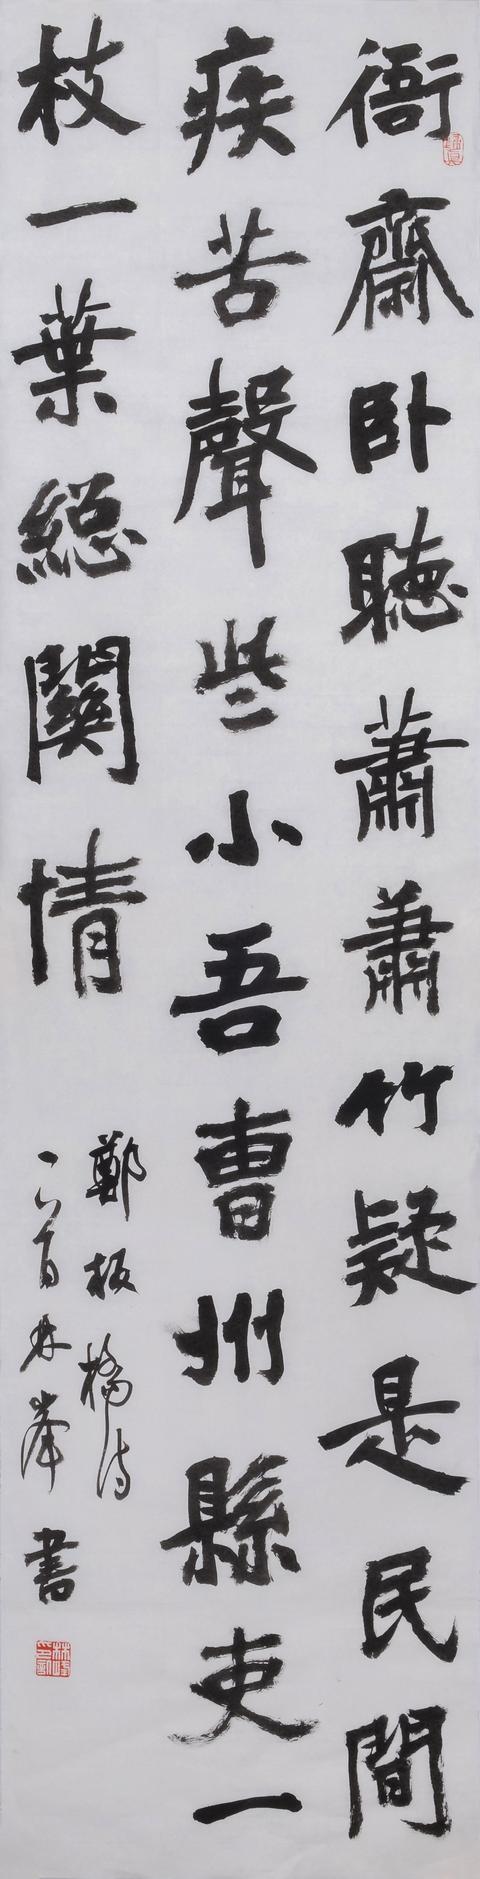 衙齋卧聽蕭蕭竹疑是民間
疾苦聲些小吾曹州縣吏一
枝一葉總關情
鄭板橋詩
一首林峰書